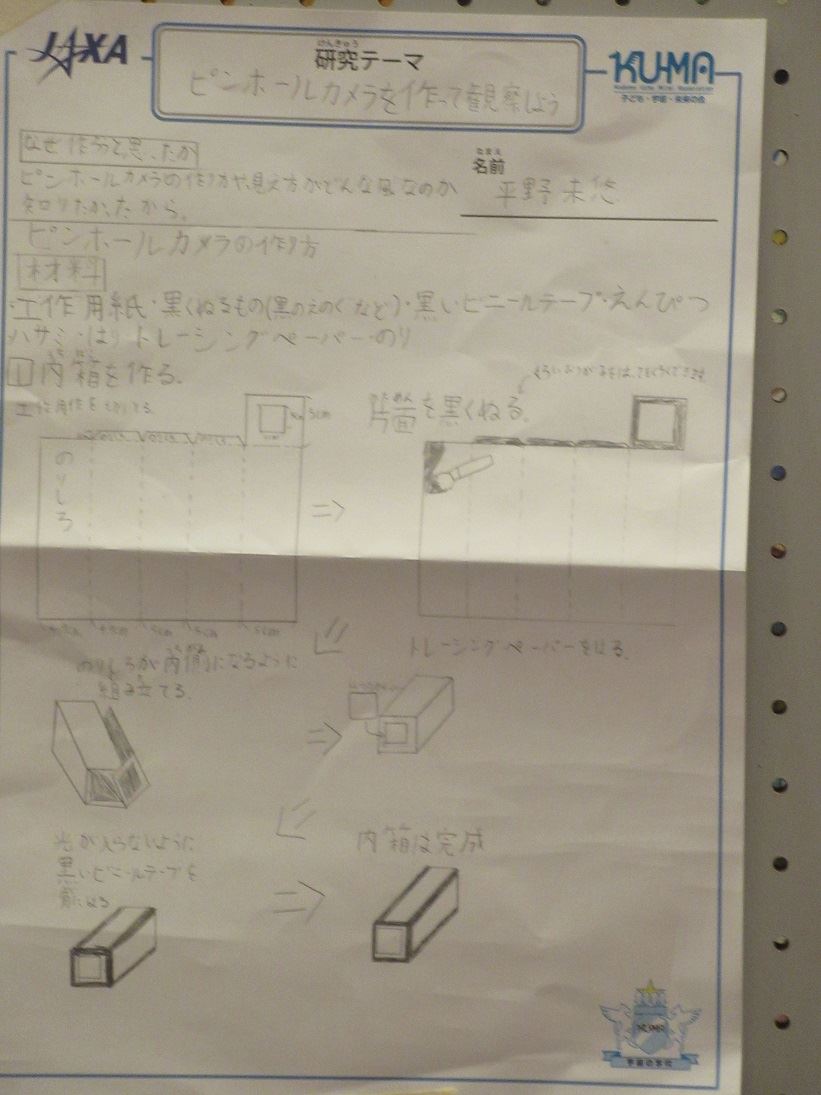 JAXA
けんきゅう
研究テーマ
ピンホールカメラを作って観察しよう
KU-MA
子ども・宇宙・未来の会
なぜ作ろうと思ったか
ピンホールカメラの作り方や、見え方がどんな風なのか
知りたかったから。
なまえ
名前
平野 未悠
ピンホールカメラの作り方
材料
・工作用紙・黒くぬるもの(黒のえのぐなど)・黒いビニールテープ・えんぴつ
ハサミ・はり トレーシングペーパー・のり
1 内箱を作る。
片面を黒くぬる。
5cm
のりしろ
4.5cm 5cm 5cm 5cm
のりしろが内側になるように
組み立てる。
トレーシングペーパーをはる。
光が入らないように
黒いビニールテープを
はる
内箱は完成
KUMA
宇宙の学校